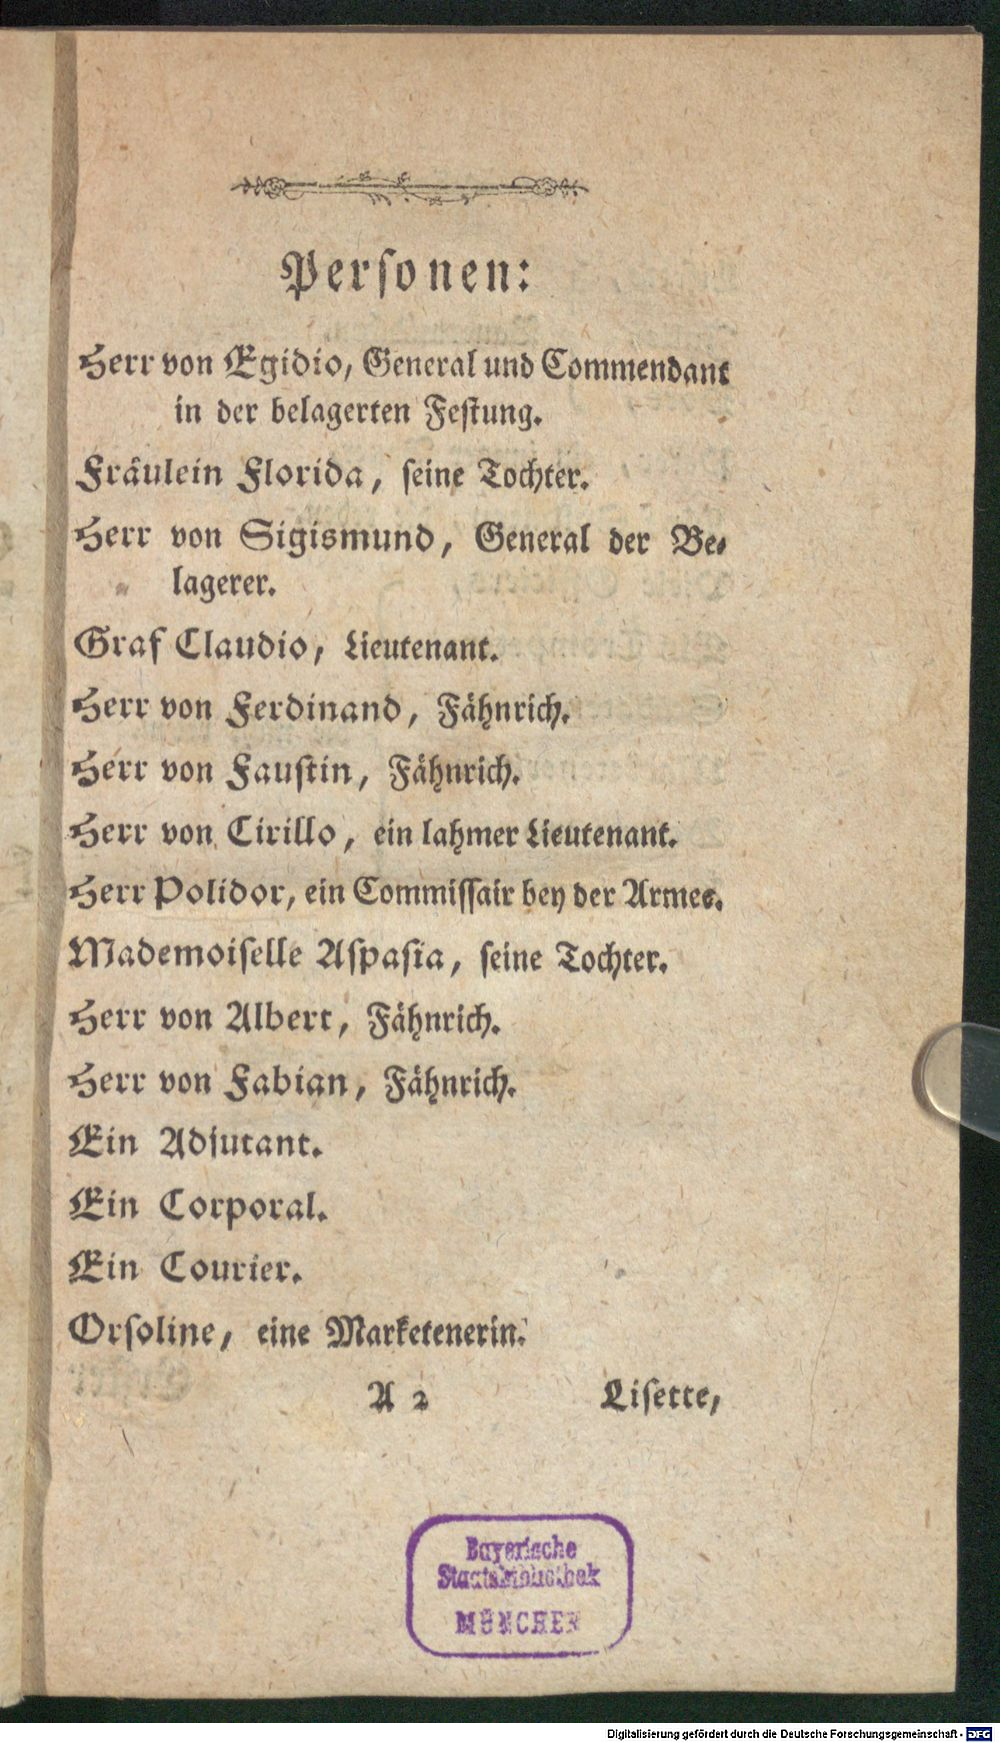 Personen:
Herr von Egidio, General und Commendant
in der belagerten Festung.
Fräulein Florida, seine Tochter.
Herr von Sigismund, General der Be-
lagerer.
Graf Claudio, Lieutenant.
Herr von Ferdinand, Fähnrich.
Herr von Faustin, Fähnrich.
Herr von Cirillo, ein lahmer Lieutenant.
Herr Polidor, ein Commissair bey der Armee.
Mademoiselle Aspasia, seine Tochter.
Herr von Albert, Fähnrich.
Herr von Fabian, Fähnrich.
Ein Adjutant.
Ein Corporal.
Ein Courier.
Orsoline, eine Marketenerin.
A 2 Lisette,
Bayerische
Staatsbibliothek
MÜNCHEN
Digitalisierung gefördert durch die Deutsche Forschungsgemeinschaft - DFG